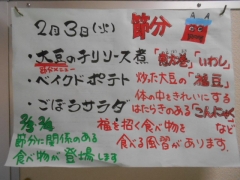 2月3日(火)
節分
・大豆のチリソース煮
・ベイクドポテト
・ごぼうサラダ
節分に関係のある
食べ物が登場します
「恵方巻」「いわし」
炒った大豆の「福豆」
体の中をきれいにする
はたらきのある「こんにゃく」
など
福を招く食べ物を
食べる風習があります。